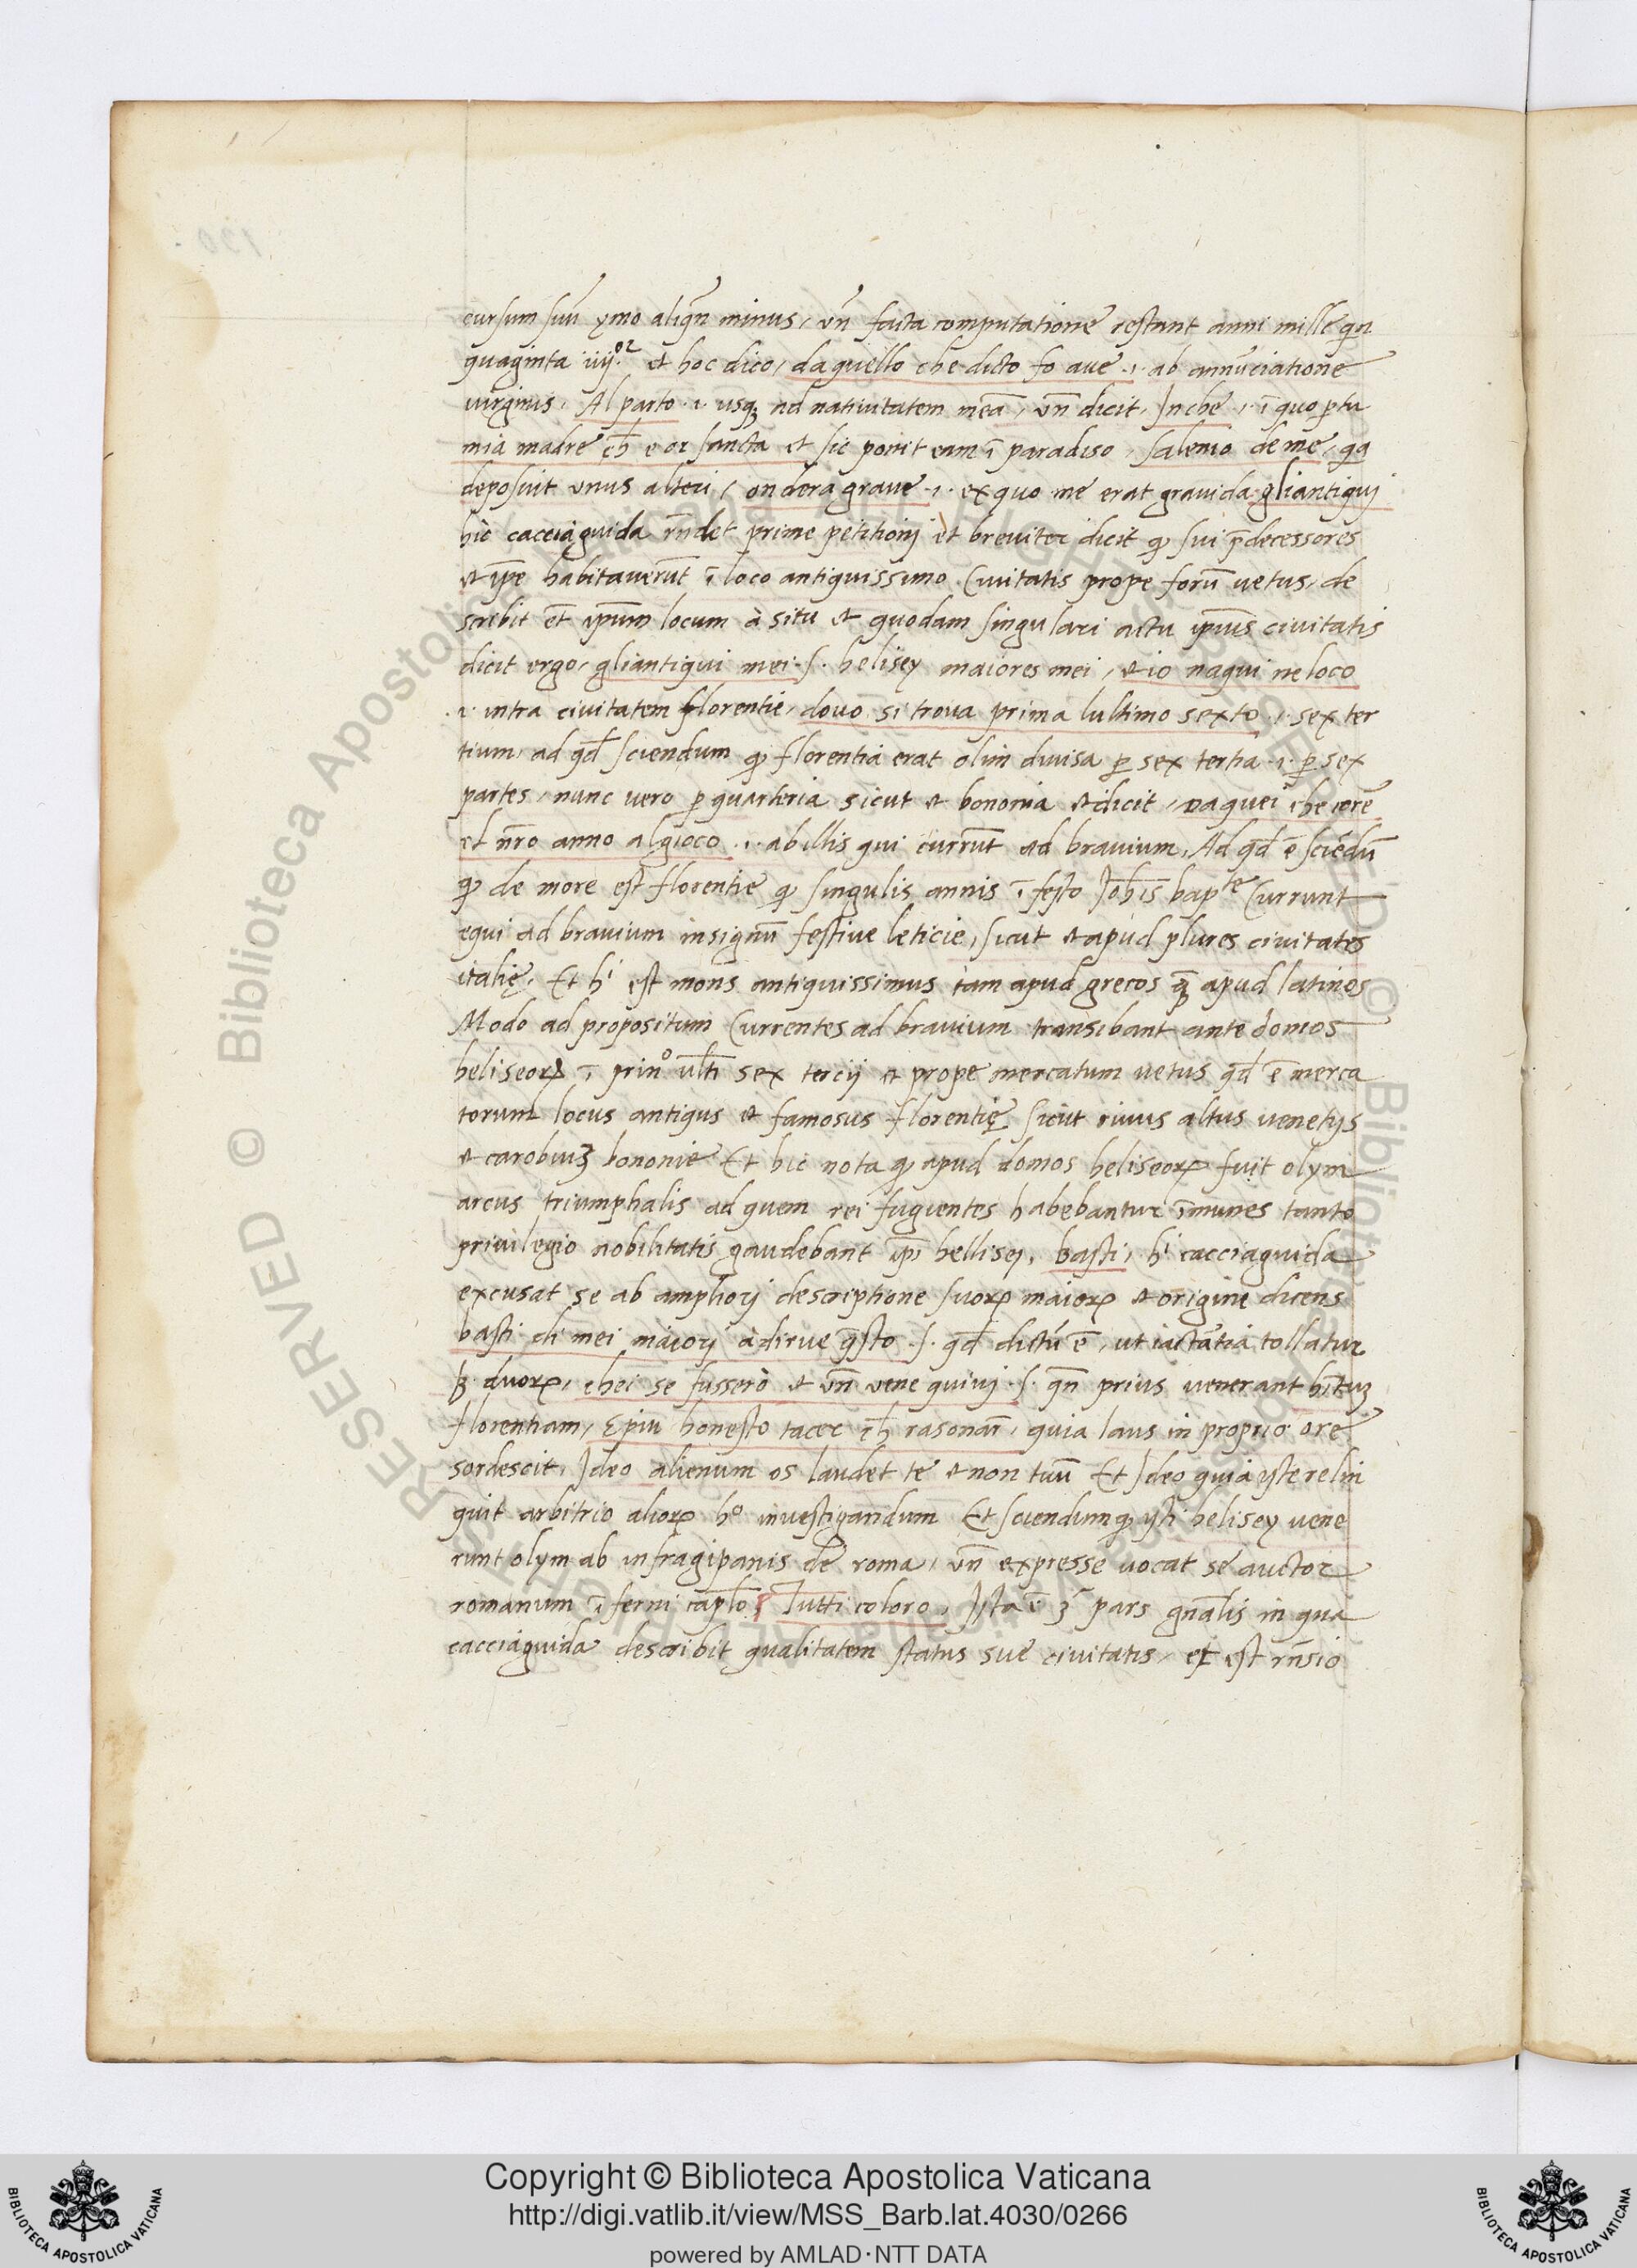 cursum suũ ymo aliqñ minus, vñ facta computatione restant anni mille qn
quaginta iiijor et hoc dico, da quello che dicto fo ave .i. ab annũciatione
virginis, Al parto .i. usqꝫ ad nativitatem meã, vñ dicit, In che .i. ĩ quo ptu
mia madre ch̃ e or sancta et sic ponit eam ĩ paradiso, salenio de me, qa
deposuit unus alteri, ondera grave .i. ex quo me erat gravida gliantiqui
hic cacciaguida rñdet prime petitionj et breviter dicit qꝫ sui p̃decessores
et ip̃e habitaverũt ĩ loco antiquissimo Civitatis prope forũ vetus, de
scribit et̃ ip̃um locum à situ et quodam singulari actu ip̃ius civitatis
dicit ergo, gliantiqui mei .s. belisey maiores mei, et io naqui ne loco
.i. intra civitatem florentie, dovo si trova prima lultimo sexto .i. sex ter
tium, ad qd̃ sciendum qꝫ florentia erat olim divisa ꝑ sex tertia .i. ꝑ sex
partes, nunc vero ꝑ quarteria sicut et bononia et dicit, Daquei che core
el nr̃o anno algioco .i. ab illis qui currũt ad bravium, Ad qd̃ ẽ sciẽdũ
qꝫ de more est florentie qꝫ singulis annis ĩ festo Joh̃is bapte Currunt
equi ad bravium in signũ festive leticie, sicut et apud plures civitates
italię, Et hi est mons antiquissimus tam apud grecos qꝫ̃ apud latinos
Modo ad propositum Currentes ad bravium transibant ante domos
beliseoꝝ ĩ prino ulti sex tercij et prope mercatum vetus qd̃ ẽ merca
torum locus antiqus et famosus florentię sicut rivus altus venetijs
et carobiuꝫ bononie Et hic nota qꝫ apud domos beliseoꝝ fuit olym
arcus triumphalis ad quem rei fugientes habebantur ĩmunes tanto
privilegio nobilitatis gaudebant ip̃i bellisej, Basti, hi cacciaguida
excusat se ab ampliorj descriptione suoꝝ maioꝝ et origine dicens
basti di mei maiorj à dirve q̃sto .s. qd̃ dictũ ẽ, ut iactãtia tollatur
ꝫ duoꝝ, chei se fussero et vñ vene quivj .s. qñ prius venerant hĩtuꝫ
florentiam, E piu honesto tacer ch̃ rasonar̃, quia laus in proprio ore
sordescit, Ideo alienum os laudet te et non tuũ Et Ideo quia yste relin
quit arbitrio alioꝝ ho investigandum Et sciendum qꝫ ysti belisey vene
runt olym ab infragipanis de roma, vñ expresse vocat se auctor
romanum ĩferni cap̃lo Tutti coloro, Ista ẽ 3ᵃ pars gñalis in qua
cacciaguida describit qualitatem status sue civitatis, et est rñsio
190
RESERVED © Biblioteca Apostolica Vaticana
Copyright © Biblioteca Apostolica Vaticana
http://digi.vatlib.it/view/MSS_Barb.lat.4030/0266
powered by AMLAD·NTT DATA
BIBLIOTECA APOSTOLICA VATICANA
BIBLIOTECA APOSTOLICA VATICANA